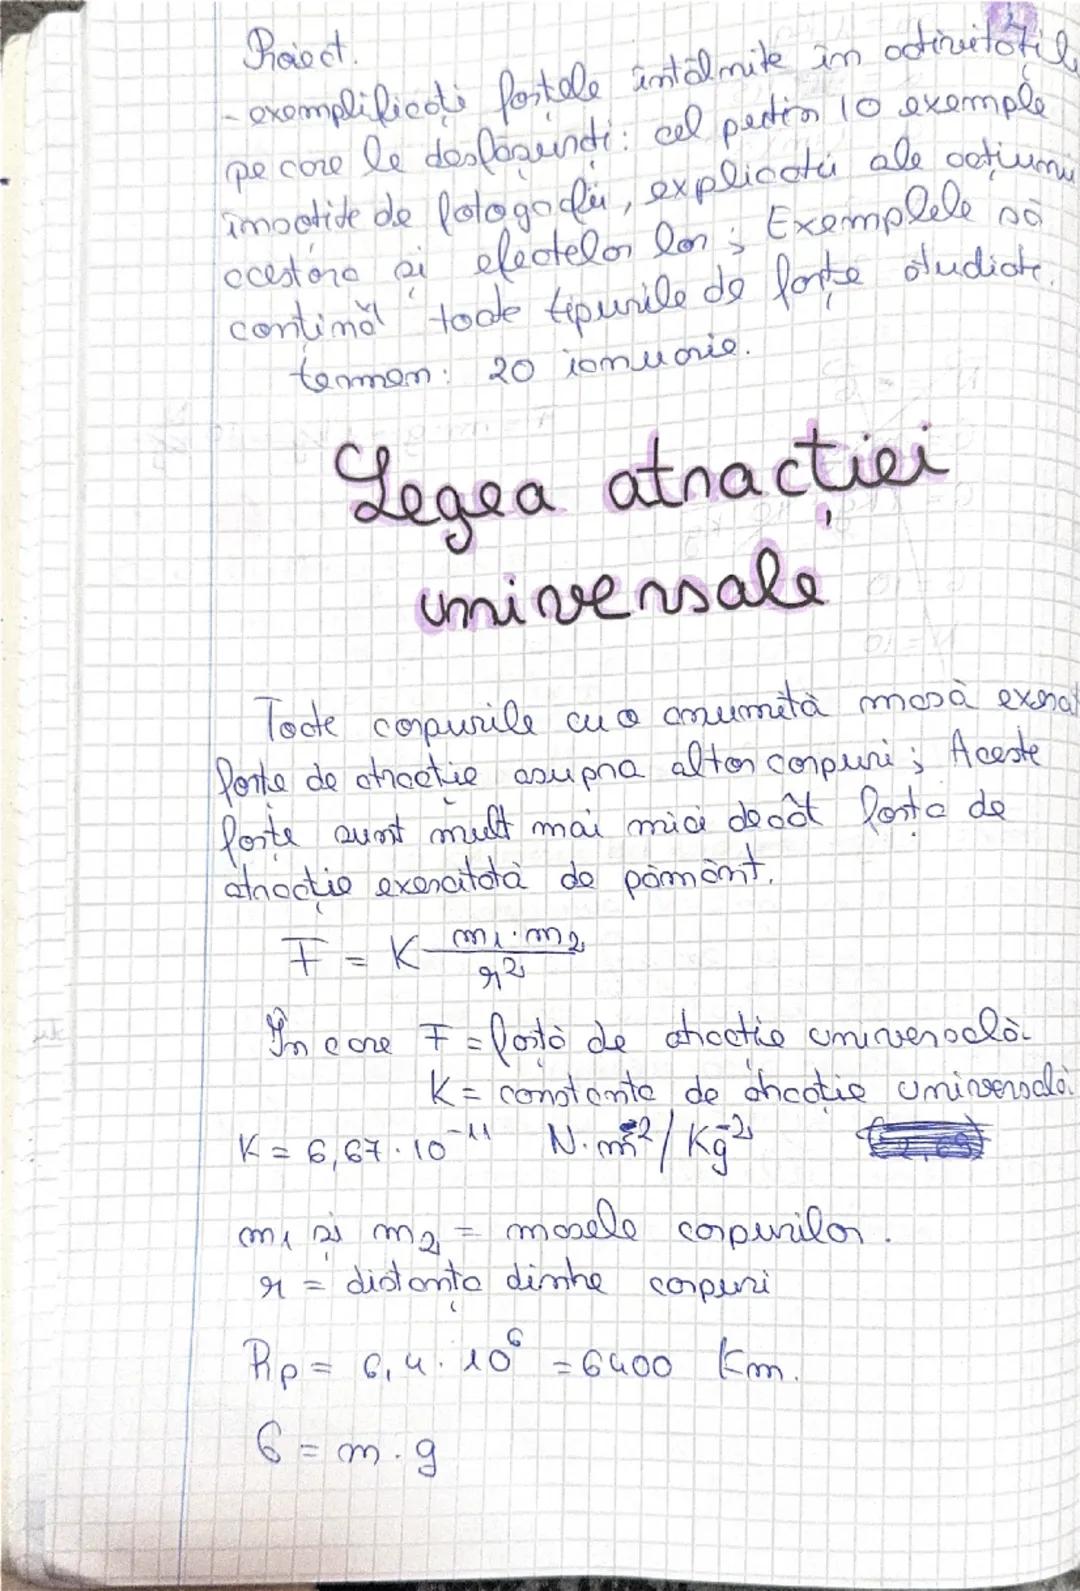 Proiect.
- exemplificați forțele întâlnite în activitățil
pe care le desfășurați: cel puțin 10 exemple
însoțite de fotografii, explicații ale acțiunii
acestora și efectelor lor; Exemplele să
conțină toate tipurile de forțe studiate.
termen: 20 ianuarie.
Legea atracției
universale
Toate corpurile cu o anumită masă exerat
forțe de atracție asupra altor corpuri; Aceste
forțe sunt mult mai mici decât forța de
atracție exercitată de pământ.
F = K m1·m2 / r²
În care F = forță de atracție universală.
K = constanta de atracție universală.
K = 6,67·10⁻¹¹ N·m² / Kg⁻²
m1 și m2 = masele corpurilor.
r = distanța dintre corpuri
Rp = 6,4·10⁶ = 6400 Km.
G = m·g